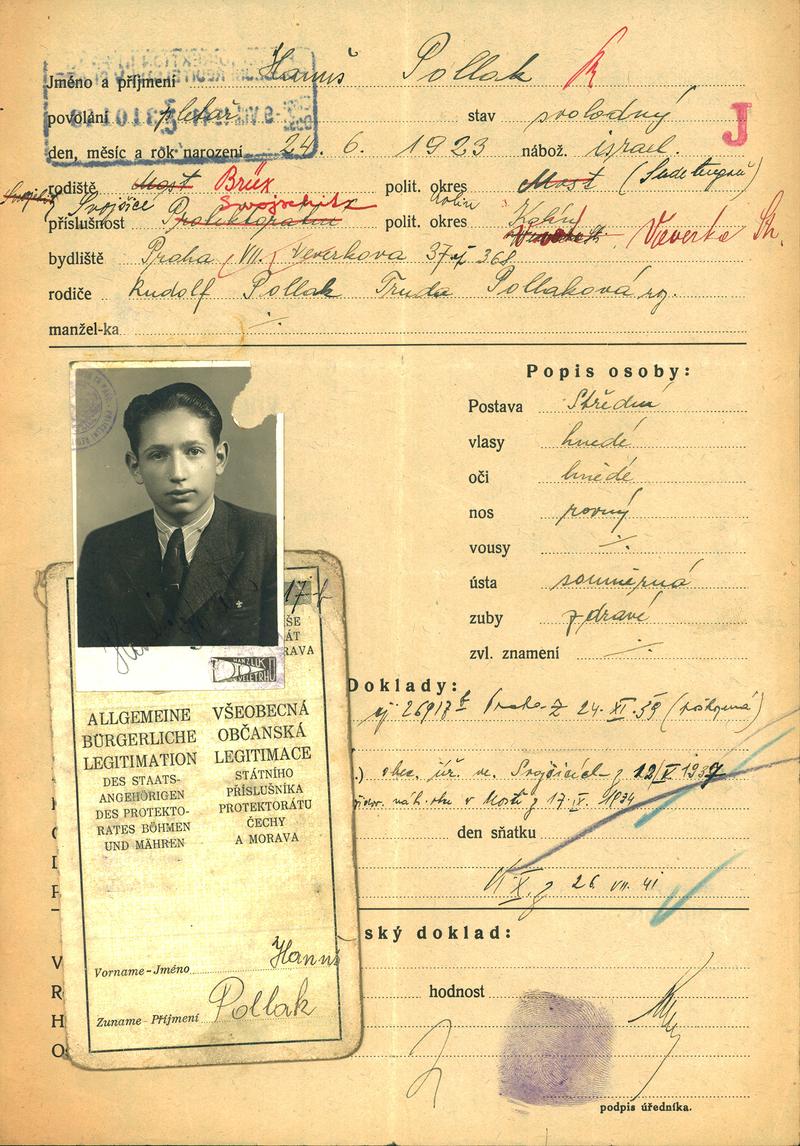 Jméno a příjmení Hanuš Pollak
povolání pletař stav svobodný
J
den, měsíc a rok narození 24. 6. 1923 nábož. israel.
rodiště Most Brüx polit. okres Most (Sudetengau)
Svojšice Svojschitz
příslušnost Protektoratu polit. okres Kolín
Kolin
bydliště Praha VII. Veverkova
rodiče Rudolf Pollak Truda Pollaková
manžel-ka
Popis osoby:
Postava Střední
vlasy hnědé
oči hnědé
nos rovný
vousy
ústa souměrná
zuby zdravé
zvl. znamení
17
ŠE
ÁT
RAVA
MANZLIK
VELETRHU
ALLGEMEINE
BÜRGERLICHE
LEGITIMATION
DES STAATS-
ANGEHÖRIGEN
DES PROTEKTO-
RATES BÖHMEN
UND MÄHREN
VŠEOBECNÁ
OBČANSKÁ
LEGITIMACE
STÁTNÍHO
PŘÍSLUŠNÍKA
PROTEKTORÁTU
ČECHY
A MORAVA
Vorname - Jméno Hanuš
Zuname - Příjmení Pollak
Doklady:
Praha 24. XI. 39
obec. úř. ve Svojšicích z 12/V 1939
v Mostě z 17. IV. 1934
den sňatku
26 VII. 41
ský doklad:
V
R
H
O
hodnost
podpis úředníka.